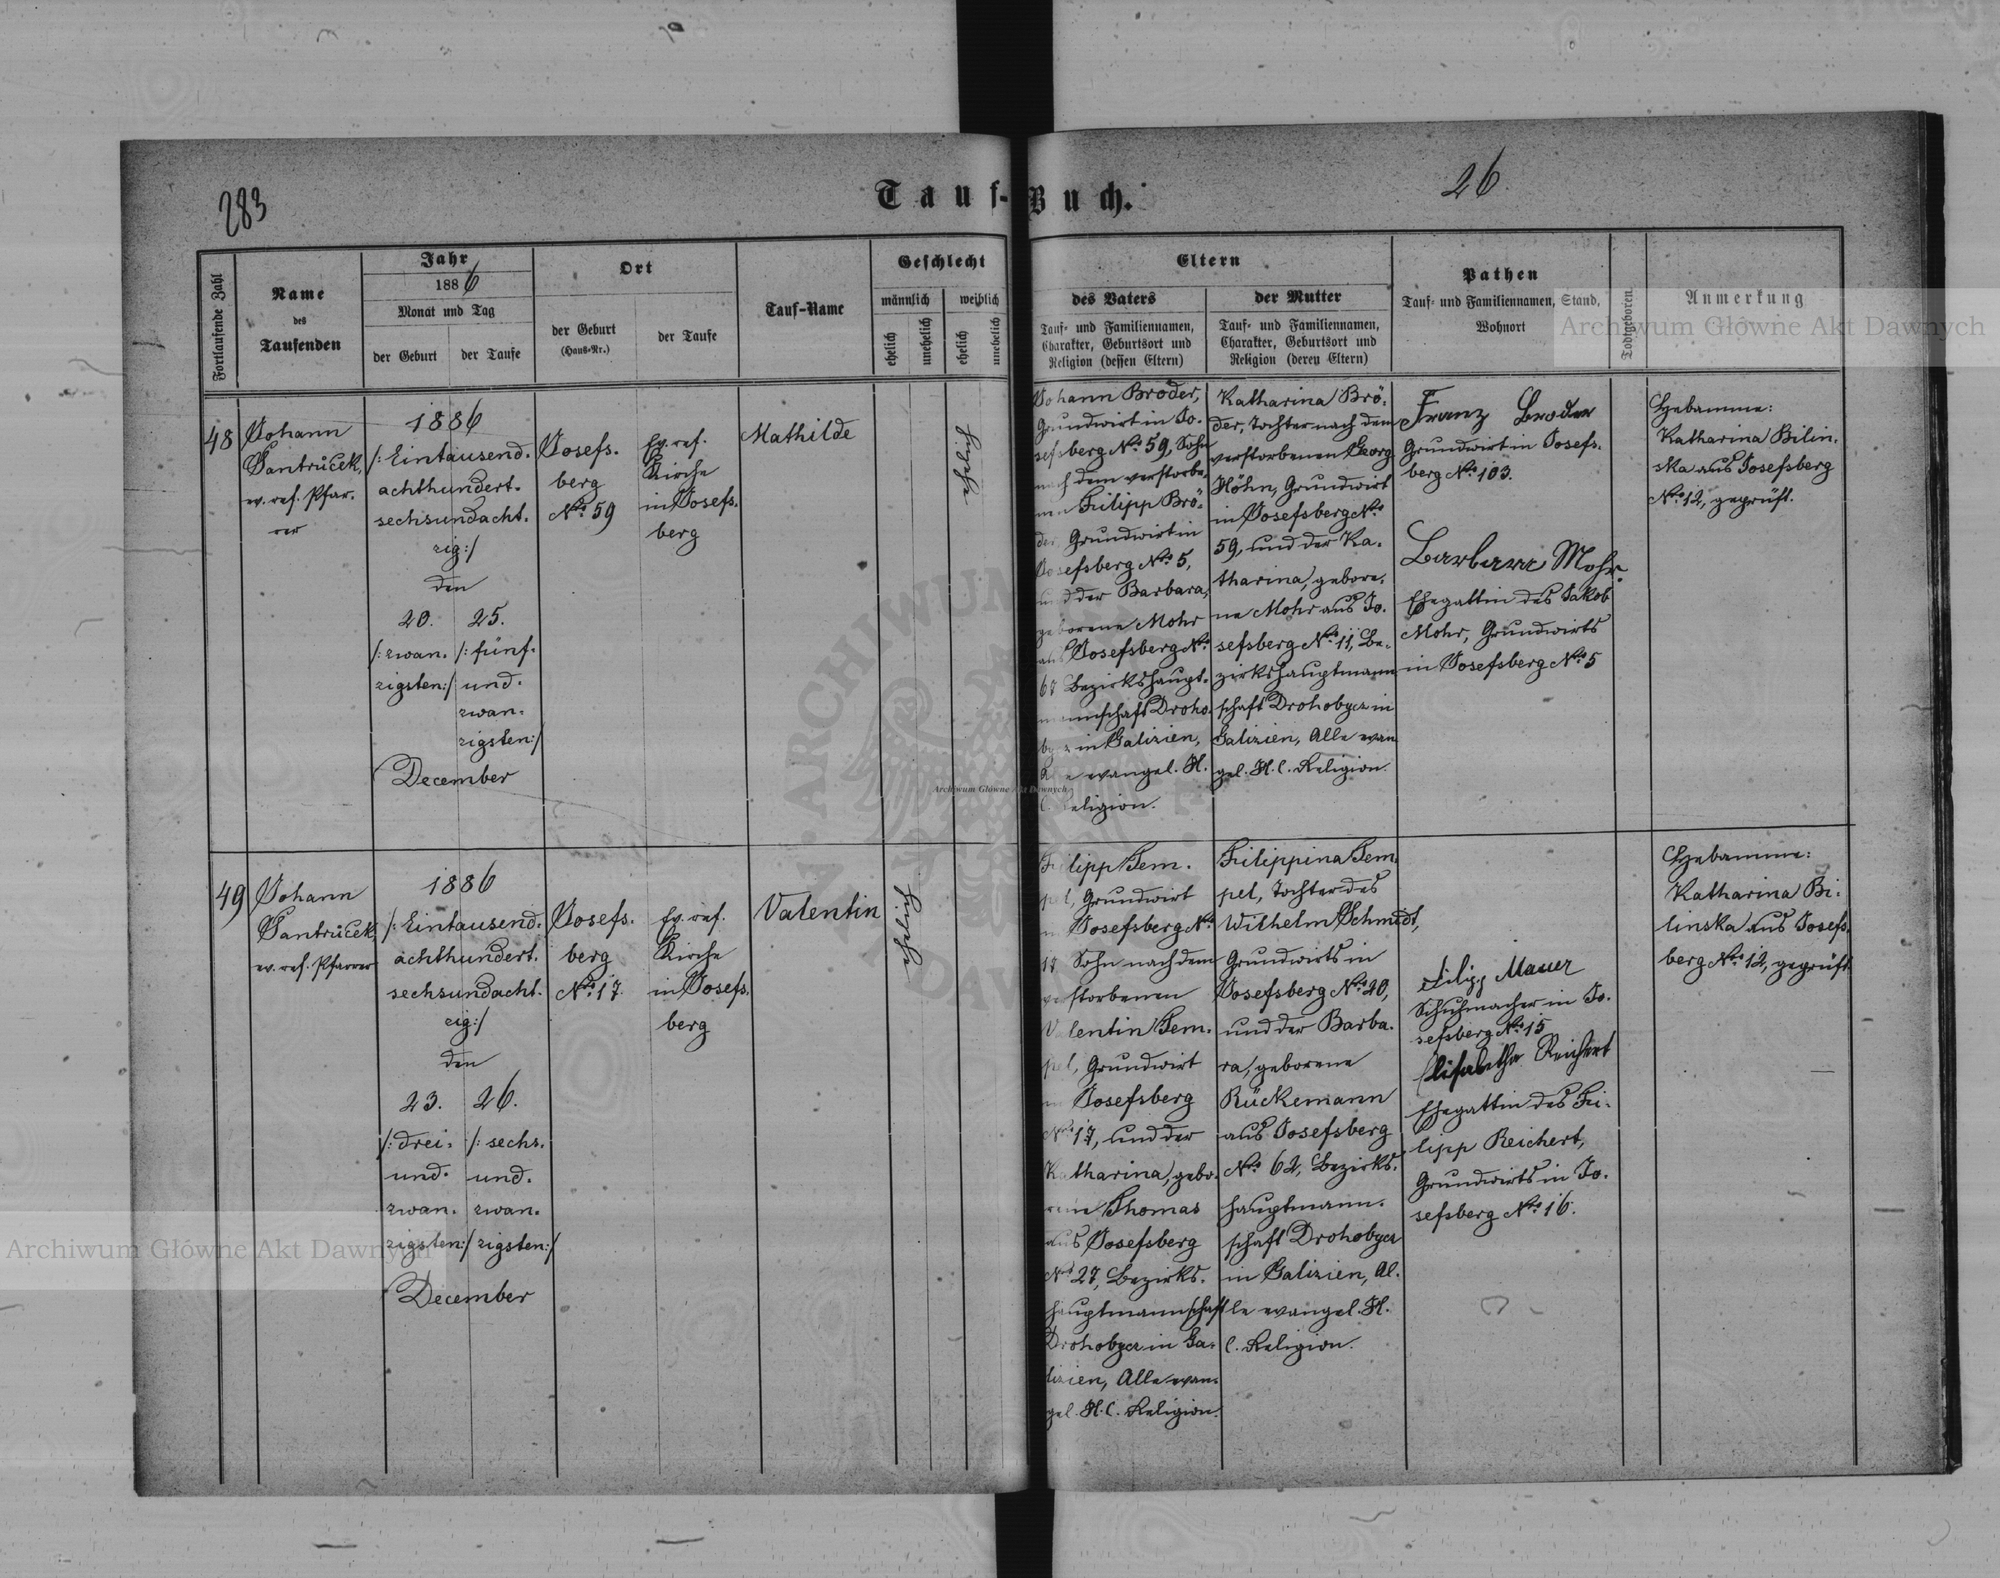 283
Tauf-Buch.
26.
Fortlaufende Zahl
Name
des
Taufenden
Jahr
1886
Monat und Tag
der Geburt
der Taufe
Ort
der Geburt
(Haus-Nr.)
der Taufe
Tauf-Name
Geschlecht
männlich
weiblich
ehelich
unehelich
ehelich
unehelich
Eltern
des Vaters
Tauf- und Familiennamen,
Charakter, Geburtsort und
Religion (dessen Eltern)
der Mutter
Tauf- und Familiennamen,
Charakter, Geburtsort und
Religion (deren Eltern)
Pathen
Tauf- und Familiennamen, Stand,
Wohnort
Todtgeboren
Anmerkung
Archiwum Główne Akt Dawnych
48
Johann
Jantrůcek,
ev. ref. Pfar-
rer
1886
/: Eintausend-
achthundert-
sechsundacht-
zig :/
den
20.
/: zwan-
zigsten :/
25.
/: fünf-
und-
zwan-
zigsten :/
December
Josefs-
berg
No. 59
Ev. ref.
Kirche
in Josefs-
berg
Mathilde
ehelich
Johann Bröder,
Grundwirt in Jo-
sefsberg No. 59, Sohn
nach dem verstorbe-
nen Filipp Brö-
der, Grundwirt in
Josefsberg No. 5,
und der Barbara,
geborene Mohr
aus Josefsberg No.
Bezirkshaupt-
mannschaft Droho-
bycz in Galizien,
Alle evangel. H.
C. Religion.
Katharina Brö-
der, Tochter nach dem
verstorbenen Georg
Höhn, Grundwirt
in Josefsberg No.
59, und der Ka-
tharina, gebore-
ne Mohr aus Jo-
sefsberg No. 11, Be-
zirkshauptmann-
schaft Drohobycz in
Galizien, Alle evan-
gel. H. C. Religion.
Franz Broder
Grundwirt in Josefs-
berg No. 103.
Barbara Mohr.
Ehegattin des Jakob
Mohr, Grundwirts
in Josefsberg No. 5
Hebamme:
Katharina Bilin-
ska aus Josefsberg
No. 12, geprüft.
Archiwum Główne Akt Dawnych
49
Johann
Jantrůcek,
ev. ref. Pfarrer
1886
/: Eintausend-
achthundert-
sechsundacht-
zig :/
den
23.
/: drei-
und-
zwan-
zigsten :/
26.
/: sechs-
und-
zwan-
zigsten :/
December
Josefs-
berg
No. 17.
Ev. ref.
Kirche
in Josefs-
berg
Valentin
ehelich
Filipp Jem-
pel, Grundwirt
in Josefsberg No.
17 Sohn nach dem
verstorbenen
Valentin Jem-
pel, Grundwirt
in Josefsberg
No. 17, und der
Katharina, gebo-
rene Thomas
aus Josefsberg
No. 27, Bezirks-
hauptmannschaft
Drohobycz in Ga-
lizien, Alle evan-
gel. H. C. Religion.
Filippina Jem-
pel, Tochter des
Wilhelm Schmidt,
Grundwirts in
Josefsberg No. 20,
und der Barba-
ra, geborene
Rückemann
aus Josefsberg
No. 62, Bezirks-
hauptmann-
schaft Drohobycz
in Galizien, Al-
le evangel. H.
C. Religion.
Filipp Mauer
Schuhmacher in Jo-
sefsberg No. 15
Elisabetha Reichert
Ehegattin des Fi-
lipp Reichert,
Grundwirts in Jo-
sefsberg No. 16.
Hebamme:
Katharina Bi-
linska aus Josefs-
berg No. 12, geprüft.
Archiwum Główne Akt Dawnych